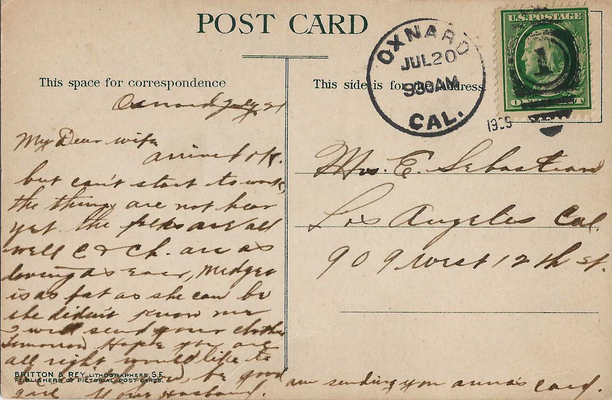 POST CARD
This space for correspondence
This side is for the Address
OXNARD
JUL 20
930AM
CAL.
U.S. POSTAGE
1
1909
Oxnard July 21
My Dear wife
arrive O.K.
but can't start to work,
the things are not hear
yet. the folks are all
well C & Ch. are as
loving as ever, Midge
is as fat as she can be
she didn't know me
I will send your clothes
tomorrow Hope you are
all right would like to
be good
girl Your Husband.
am sending you anna's card.
Mrs. E. Sebastian
Los Angeles Cal.
909 West 12th st.
BRITTON & REY, LITHOGRAPHERS, S.F.
PUBLISHERS OF PICTORIAL POST CARDS.